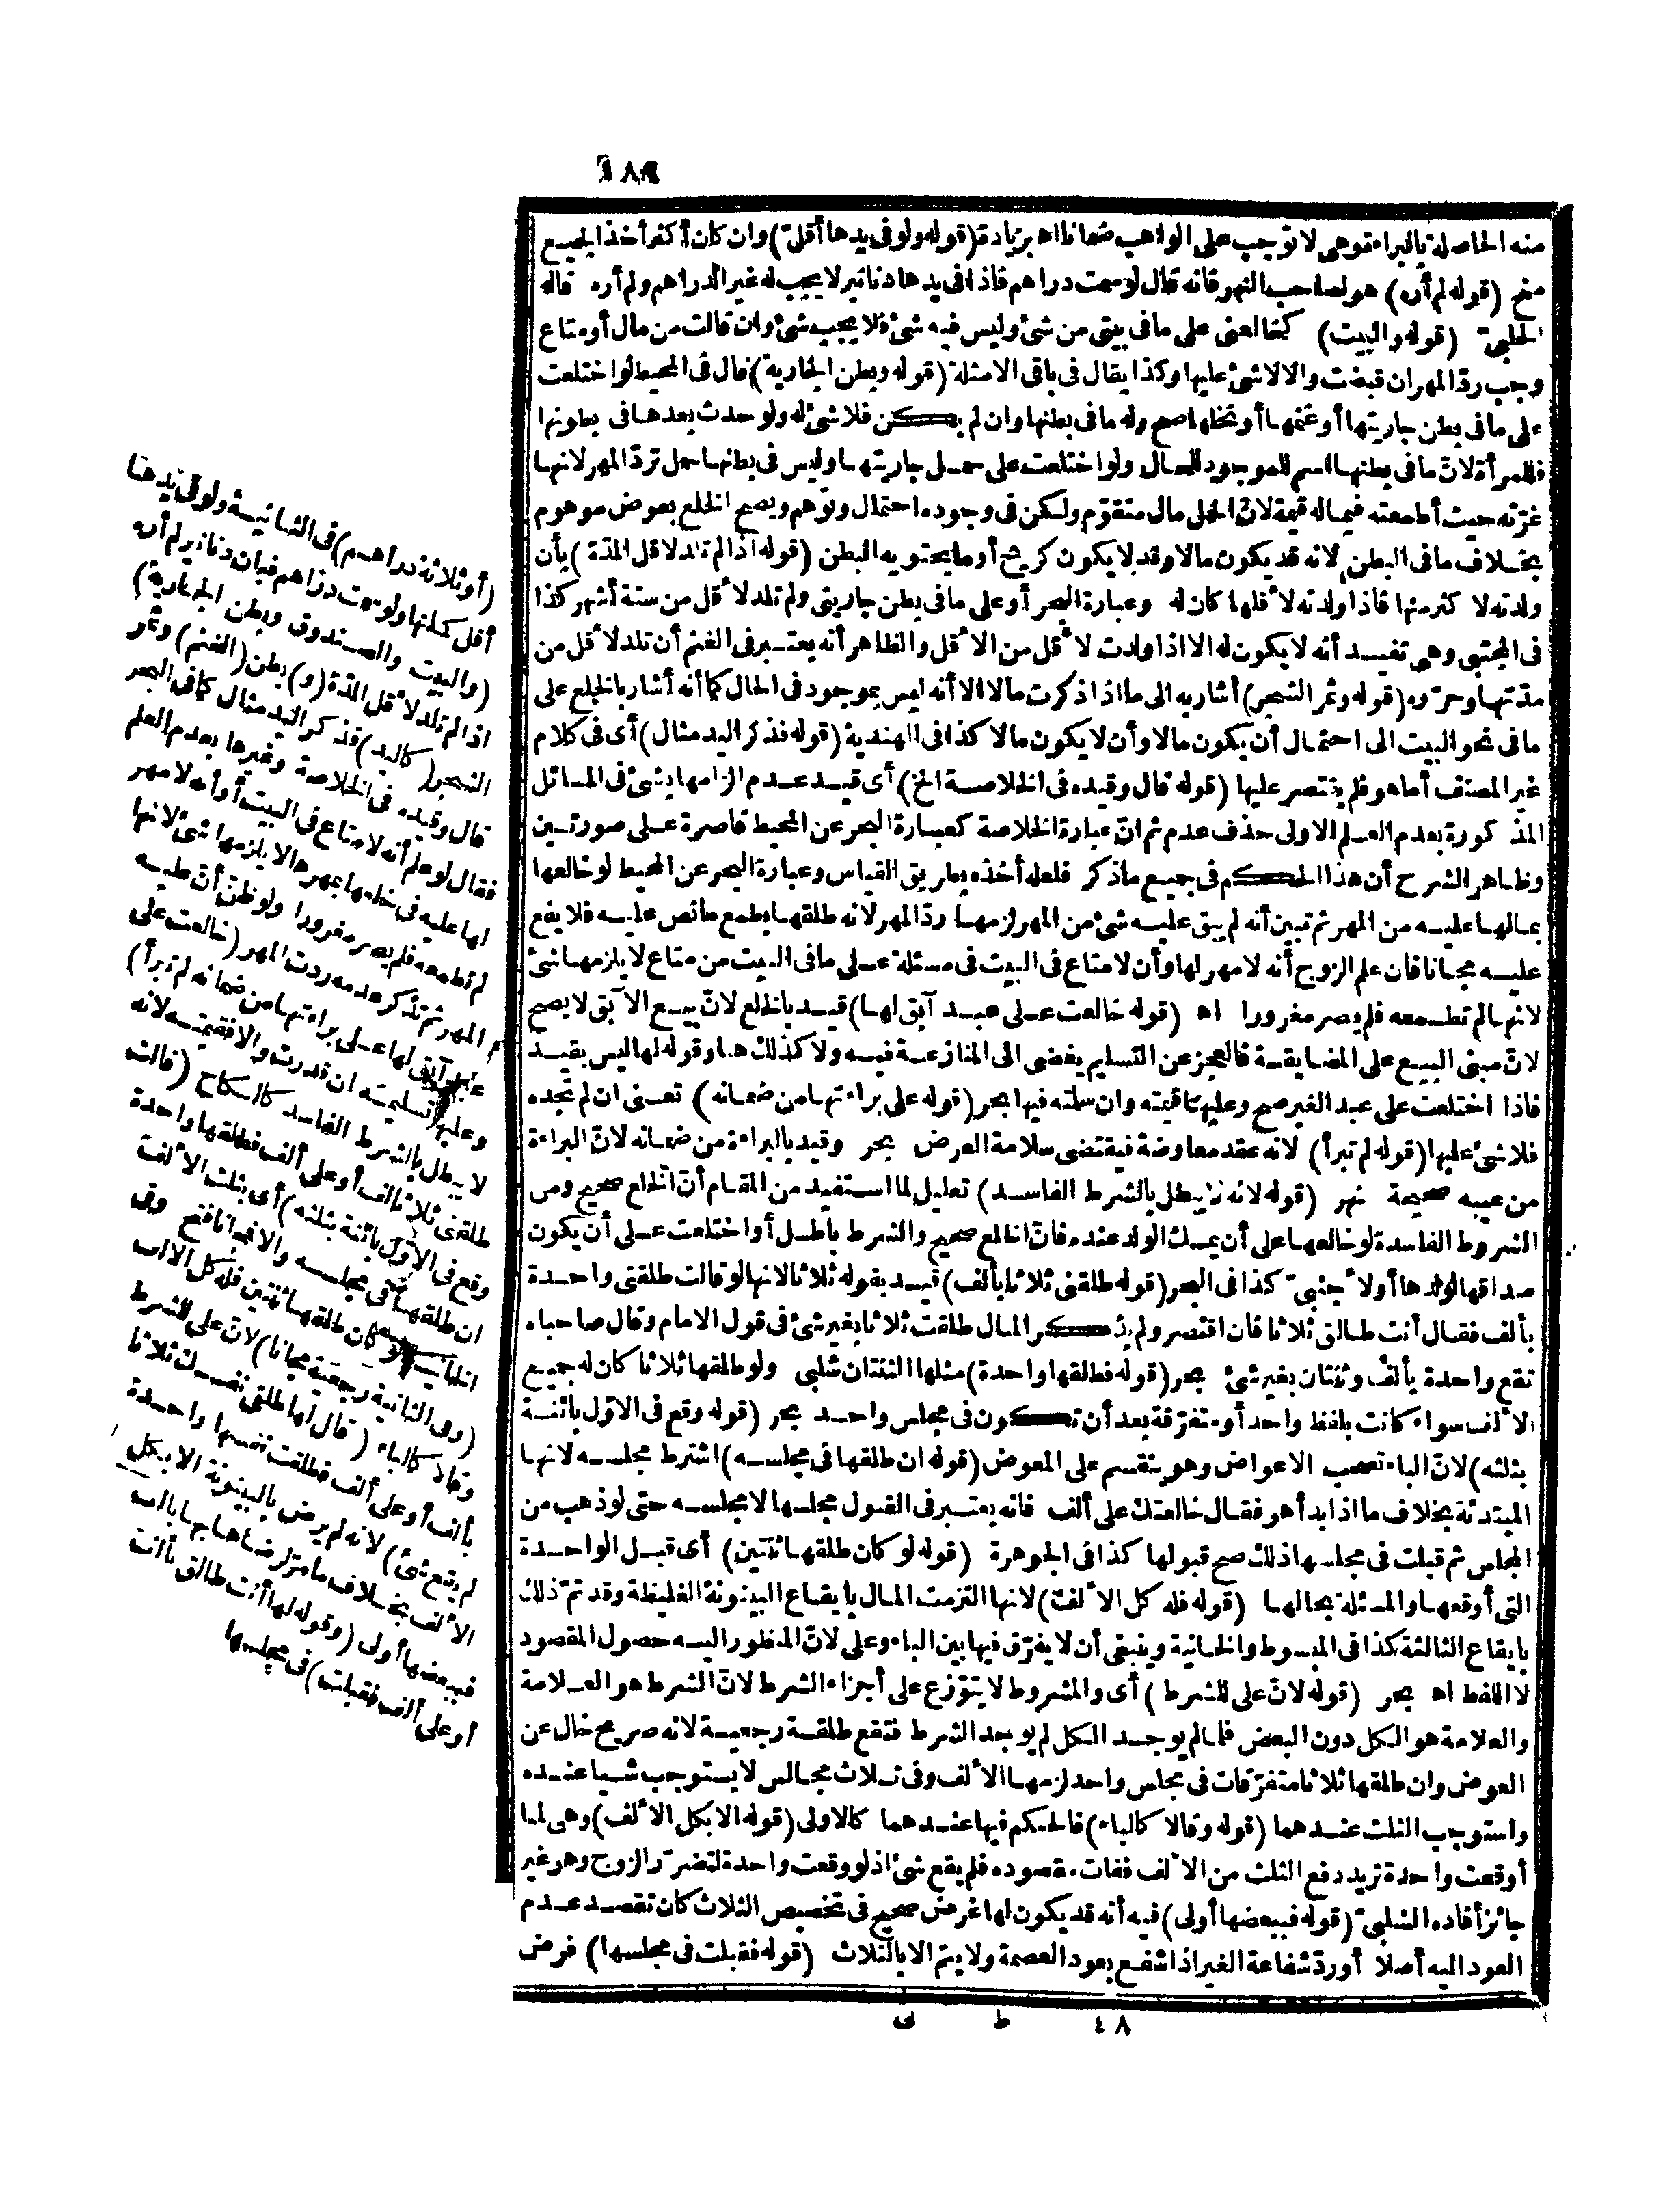 ١٨٩
منه الحاصلة بالبراءة وهى لا توجب على الواهب ضمانا اه بزيادة (قوله ولو فى يدها أقلّ) وان كان أكثر أخذ الجميع
منح (قوله لم أره) هو لصاحب النهر فانه قال لو سمت دراهم فاذا فى يدها دنانير لا يجب له غير الدراهم ولم أره قاله
الحلبىّ (قوله والبيت) كخالعنى على ما فى بيتى من شئ وليس فيه شئ فلا يجب شئ وان قالت من مال أو متاع
وجب ردّ المهر ان قبضت والا لا شئ عليها وكذا يقال فى باقى الامثلة (قوله وبطن الجارية) قال فى المحيط لو اختلعت
على ما فى بطن جاريتها أو غنمها أو نخلها صح وله ما فى بطنها وان لم يكن فلا شئ له ولو حدث بعدها فى بطونها
فللمرأة لانّ ما فى بطنها اسم للموجود للحال ولو اختلعت على حمل جاريتها وليس فى بطنها حمل تردّ المهر لانها
غرّته حيث أطمعته فيما له قيمة لانّ الحمل مال متقوّم ولكن فى وجوده احتمال وتوهم ويصح الخلع بعوض موهوم
بخلاف ما فى البطن لانه قد يكون مالا وقد لا يكون كريح أو ما يحتويه البطن (قوله اذا لم تلد لاقل المدّة) بأن
ولدته لا كثر منها فاذا ولدته لأقلها كان له وعبارة البحر أو على ما فى بطن جاريتى ولم تلد لأقل من ستة أشهر كذا
فى المجتبى وهى تفيد أنه لا يكون له الا اذا ولدت لأقل من الأقل والظاهر أنه يعتبر فى الغنم أن تلد لأقل من
مدّتها وحرّره (قوله وثمر الشجر) أشار به الى ما اذا ذكرت مالا الا أنه ليس بموجود فى الحال كما أنه أشار بالخلع على
ما فى نحو البيت الى احتمال أن يكون مالا وأن لا يكون مالا كذا فى الهندية (قوله فذكر اليد مثال) أى فى كلام
غير المصنف أما هو فلم يقتصر عليها (قوله قال وقيده فى الخلاصة الخ) أى قيد عدم الزامها بشئ فى المسائل
المذكورة بعدم العلم الاولى حذف عدم ثم انّ عبارة الخلاصة كعبارة البحر عن المحيط قاصرة على صورتين
وظاهر الشرح أن هذا الحكم فى جميع ما ذكر فلعله أخذه بطريق القياس وعبارة البحر عن المحيط لو خالعها
بما لها عليه من المهر ثم تبين أنه لم يبق عليه شئ من المهر لزمها ردّ المهر لانه طلقها بطمع ما نص عليه فلا يقع
عليه مجانا فان علم الزوج أنه لا مهر لها وأن لا متاع فى البيت فى مسئلة على ما فى البيت من متاع لا يلزمها شئ
لانها لم تطمعه فلم يصر مغرورا اه (قوله خالعت على عبد آبق لها) قيد بالخلع لانّ بيع الآبق لا يصح
لانّ مبنى البيع على المضايقة فالعجز عن التسليم يفضى الى المنازعة فيه ولا كذلك هنا وقوله لها ليس بقيد
فاذا اختلعت على عبد الغير صح وعليها قيمته وان سلمته فيها بحر (قوله على براءتها من ضمانه) تعنى ان لم تجده
فلا شئ عليها (قوله لم تبرأ) لانه عقد معاوضة فيقتضى سلامة العوض بحر وقيد بالبراءة من ضمانه لانّ البراءة
من عيبه صحيحة نهر (قوله لانه لا يبطل بالشرط الفاسد) تعليل لما استفيد من المقام أنّ الخلع صحيح ومن
الشروط الفاسدة لو خالعها على أن يمسك الولد عنده فانّ الخلع صحيح والشرط باطل أو اختلعت على أن يكون
صداقها لولدها أو لأجنبىّ كذا فى البحر (قوله طلقنى ثلاثا بألف) قيد بقوله ثلاثا لانها لو قالت طلقنى واحدة
بألف فقال أنت طالق ثلاثا فان اقتصر ولم يذكر المال طلقت ثلاثا بغير شئ فى قول الامام وقال صاحباه
تقع واحدة بألف وثنتان بغير شئ بحر (قوله فطلقها واحدة) مثلها الثنتان شلبى ولو طلقها ثلاثا كان له جميع
الألف سواء كانت بلفظ واحد أو متفرّقة بعد أن تكون فى مجلس واحد بحر (قوله وقع فى الاوّل بائنة
بثلثه) لانّ الباء تصحب الاعواض وهو ينقسم على المعوض (قوله ان طلقها فى مجلسه) اشترط مجلسه لانها
المبتدئة بخلاف ما اذا بدأ هو فقال خالعتك على ألف فانه يعتبر فى القبول مجلسها لا مجلسه حتى لو ذهب من
المجلس ثم قبلت فى مجلسها ذلك صح قبولها كذا فى الجوهرة (قوله لو كان طلقها ثنتين) أى قبل الواحدة
التى أوقعها والمسئلة بحالها (قوله فله كل الألف) لانها التزمت المال بايقاع البينونة الغليظة وقد تمّ ذلك
بايقاع الثالثة كذا فى المبسوط والخانية وينبغى أن لا يفرّق فيها بين الباء وعلى لانّ المنظور اليه حصول المقصود
لا اللفظ اه بحر (قوله لانّ على للشرط) أى والمشروط لا يتوّزع على أجزاء الشرط لانّ الشرط هو العلامة
والعلامة هو الكل دون البعض فلما لم يوجد الكل لم يوجد الشرط فتقع طلقة رجعية لانه صريح خال عن
العوض وان طلقها ثلاثا متفرّقات فى مجلس واحد لزمها الألف وفى ثلاث مجالس لا يستوجب شيا عنده
واستوجب الثلث عندهما (قوله وقالا كالباء) فالحكم فيها عندهما كالاولى (قوله الا بكل الألف) وهى لما
أوقعت واحدة تريد دفع الثلث من الألف ففات مقصوده فلم يقع شئ اذ لو وقعت واحدة لتضرّر الزوج وهو غير
جائز أفاده الشلبىّ (قوله فببعضها أولى) فيه أنه قد يكون لها غرض صحيح فى تخصيص الثلاث كان تقصد عدم
العود اليه أصلا أو ردّ شفاعة الغير اذا شفع بعود العصمة ولا يتم الا بالثلاث (قوله فقبلت فى مجلسها) فرض
(أو ثلاثة دراهم) فى الثانية ولو فى يدها
أقل كملتها ولو سمت دراهم فبان دنانير لم أره
(والبيت والصندوق وبطن الجارية)
اذا لم تلد لأقل المدّة (و) بطن (الغنم) وثمر
الشجر (كاليد) فذكر اليد مثال كما فى البحر
قال وقيده فى الخلاصة وغيرها بعدم العلم
فقال لو علم أنه لا متاع فى البيت أو أنه لا مهر
لها عليه فى خلعها بمهرها لا يلزمها شئ لانها
لم تطمعه فلم يصر مغرورا ولو ظنّ أنّ عليه
المهر ثم تذكر عدمه ردت المهر (خالعت على
عبد آبق لها على براءتها من ضمانه لم تبرأ)
وعليها تسليمه ان قدرت والا فقيمته لانه
لا يبطل بالشرط الفاسد كالنكاح (قالت
طلقنى ثلاثا بألف أو على ألف فطلقها واحدة
وقع فى الاوّل بائنة بثلثه) أى بثلث الألف
ان طلقها فى مجلسه والا فمجانا فتح وفى
الخانية لو كان طلقها ثنتين فله كل الالف
(وفى الثانية رجعية مجانا) لانّ على للشرط
وقالا كالباء (قال لها طلقى نفسك ثلاثا
بألف أو على ألف فطلقت نفسها واحدة
لم يقع شئ) لانه لم يرض بالبينونة الا بكل
الألف بخلاف ما مرّ لرضاها بها بالف
فببعضها أولى (وقوله لها أنت طالق بألف
أو على ألف فقبلت) فى مجلسها
٤٨ ط نى